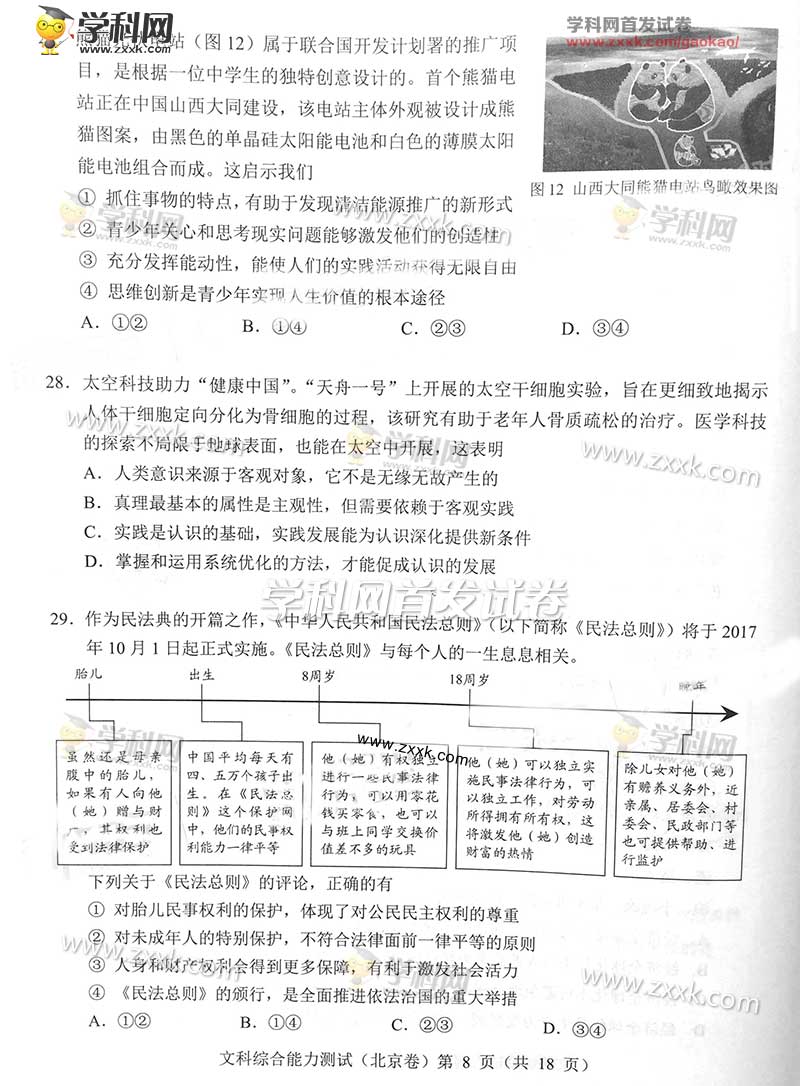 学科网
www.zxxk.com
学科网首发试卷
www.zxxk.com/gaokao/
站(图12)属于联合国开发计划署的推广项
目,是根据一位中学生的独特创意设计的。首个熊猫电
站正在中国山西大同建设,该电站主体外观被设计成熊
猫图案,由黑色的单晶硅太阳能电池和白色的薄膜太阳
能电池组合而成。这启示我们
图12 山西大同熊猫电站鸟瞰效果图
① 抓住事物的特点,有助于发现清洁能源推广的新形式
② 青少年关心和思考现实问题能够激发他们的创造性
③ 充分发挥能动性,能使人们的实践活动获得无限自由
④ 思维创新是青少年实现人生价值的根本途径
A. ①② B. ①④ C. ②③ D. ③④
28. 太空科技助力“健康中国”。“天舟一号”上开展的太空干细胞实验,旨在更细致地揭示
人体干细胞定向分化为骨细胞的过程,该研究有助于老年人骨质疏松的治疗。医学科技
的探索不局限于地球表面,也能在太空中开展,这表明
A. 人类意识来源于客观对象,它不是无缘无故产生的
B. 真理最基本的属性是主观性,但需要依赖于客观实践
C. 实践是认识的基础,实践发展能为认识深化提供新条件
D. 掌握和运用系统优化的方法,才能促成认识的发展
学科网首发试卷
29. 作为民法典的开篇之作,《中华人民共和国民法总则》(以下简称《民法总则》)将于2017
年10月1日起正式实施。《民法总则》与每个人的一生息息相关。
胎儿 出生 8周岁 18周岁 晚年
虽然还是母亲
腹中的胎儿,
如果有人向他
(她)赠与财
产,其权利也
受到法律保护
中国平均每天有
四、五万个孩子出
生。在《民法总
则》这个保护网
中,他们的民事权
利能力一律平等
他(她)有权独立
进行一些民事法律
行为,可以用零花
钱买零食,也可以
与班上同学交换价
值差不多的玩具
他(她)可以独立实
施民事法律行为,可
以独立工作,对劳动
所得拥有所有权,这
将激发他(她)创造
财富的热情
除儿女对他(她)
有赡养义务外,近
亲属、居委会、村
委会、民政部门等
也可提供帮助、进
行监护
www.zxxk.com
下列关于《民法总则》的评论,正确的有
① 对胎儿民事权利的保护,体现了对公民民主权利的尊重
② 对未成年人的特别保护,不符合法律面前一律平等的原则
③ 人身和财产权利会得到更多保障,有利于激发社会活力
④ 《民法总则》的颁行,是全面推进依法治国的重大举措
A. ①② B. ①④ C. ②③ D. ③④
文科综合能力测试(北京卷)第 8 页(共 18 页)